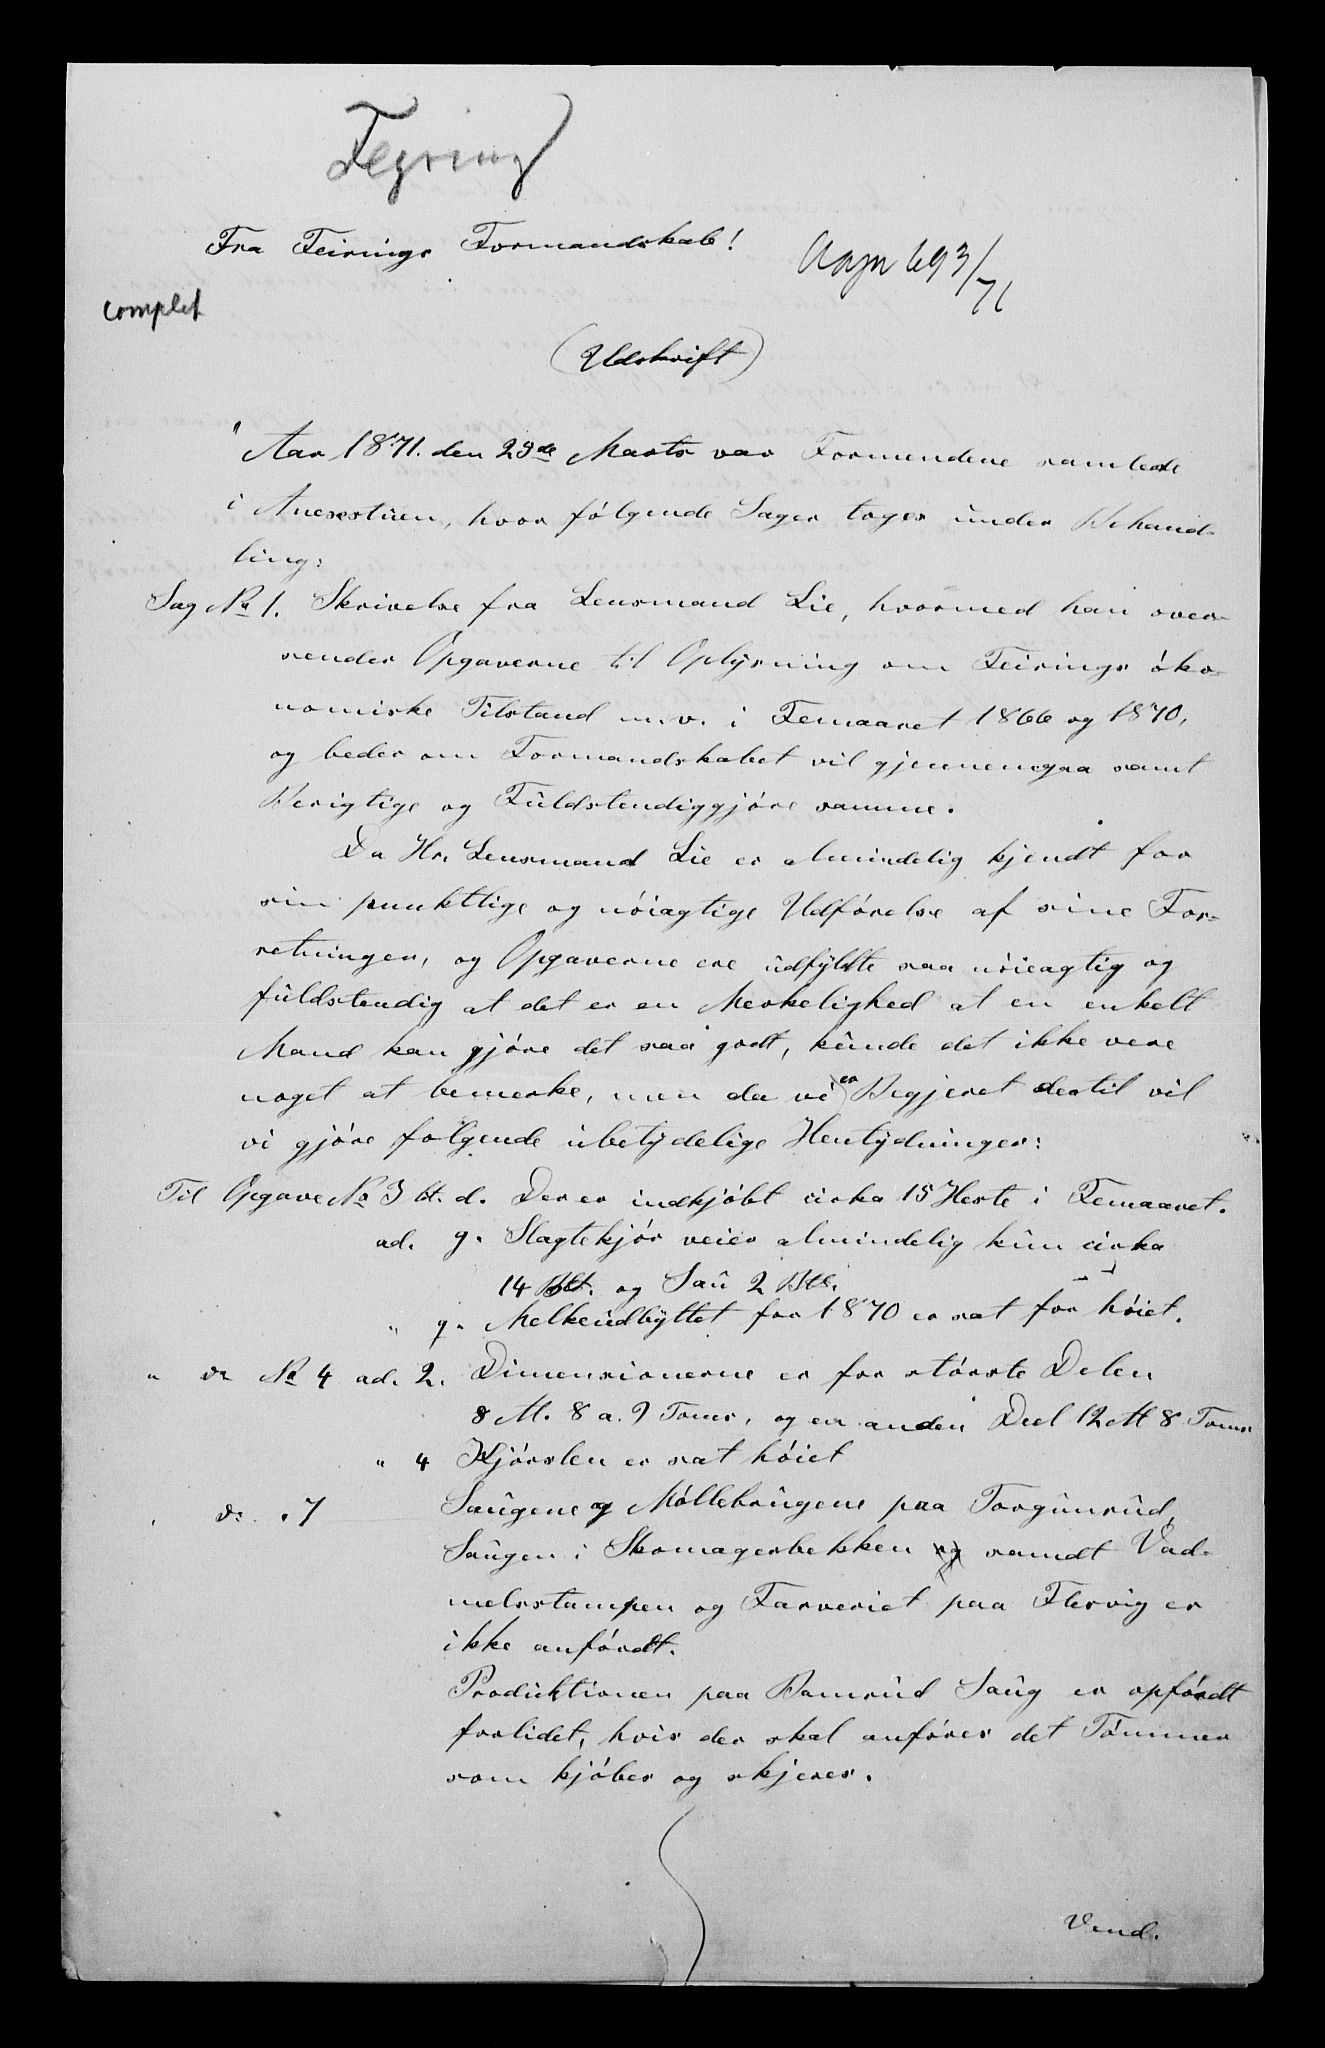 Feyring
Fra Feirings Formandskab!
693/71
complet
(Udskrift)
"Aar 1871. den 23de Marts var Formendene samlede
i Anesestuen, hvor følgende Sager toges under Behand-
ling:
Sag No 1. Skrivelse fra Lensmand Lie, hvormed han over-
sender Opgaverne til Oplysning om Feirings øko-
nomiske Tilstand m.v. i Femaaret 1866 og 1870,
og beder om Formandskabet vil gjennemgaa samt
Berigtige og Fuldstendiggjøre samme.
Da Hr. Lensmand Lie er almindelig kjendt for
sin punktlige og nøiagtige Udførelse af sine For-
retninger, og Opgaverne ere udfyldte saa nøieagtig og
fuldstendig at det er en Merkelighed at en enkelt
Mand kan gjøre det saa godt, kunde det ikke vere
noget at bemerke, men da vi er Begjeret dertil vil
vi gjøre følgende ubetydelige Hentydninger:
Til Opgave No 3 lit. d. Der er indkjøbt cirka 15 Heste i Femaaret.
ad. g. Slagtekjør veier almindelig kun cirka
14 Bℓ. og Sau 2 Bℓ.
" g. Melkeudbyttet for 1870 er sat for høiet.
" do No 4 ad. 2. Dimensionerne er for største Delen
8 Al. 8 a. 9 Toms, og en anden Deel 12 Al 8 Toms
" 4 Kjørslen er sat høiet
" do " 7 Saugene og Møllebrugene paa Torgunrud,
Saugen i Skomagerbekken og samdt Vad-
melsstampen og Farveriet paa Flesvig er
ikke anførdt.
Produktionen paa Bamrud Saug er opførdt
forlidet, hvis der skal anføres det Tømmer
som kjøbes og skjeres.
Vend.